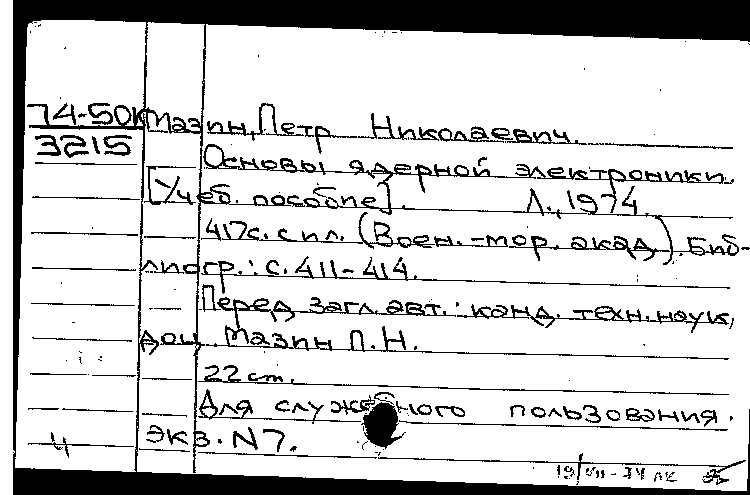 74-50к Мазин, Петр Николаевич.
3215
Основы ядерной электроники.
[Учеб. пособие]. Л., 1974.
417с. с ил. (Воен.-мор. акад.). Биб-
лиогр.: с. 411-414.
Перед загл. авт.: канд. техн. наук,
доц. Мазин П.Н.
22 см.
Для служебного пользования.
Экз. N7.
4
19/VII-74